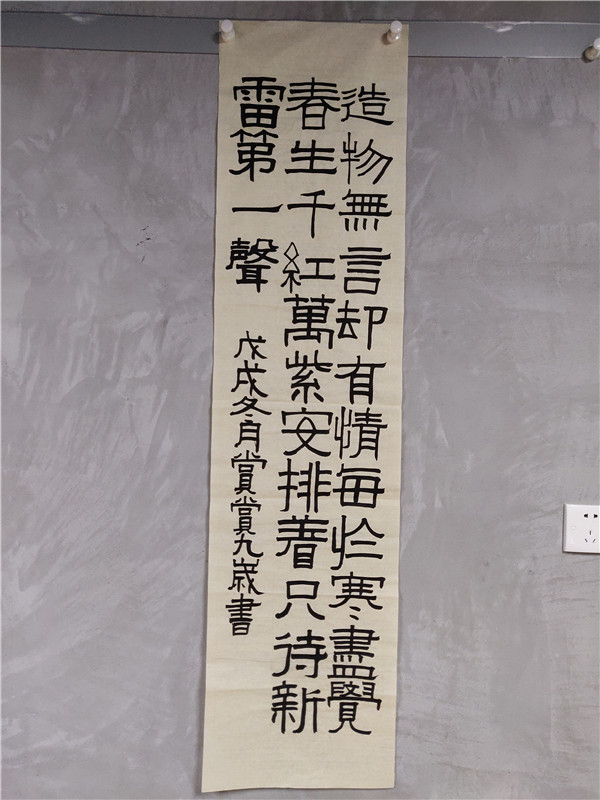 造物無言却有情每於寒盡覺
春生千紅萬紫安排着只待新
雷第一聲
戊戌冬月賞賞九歲書